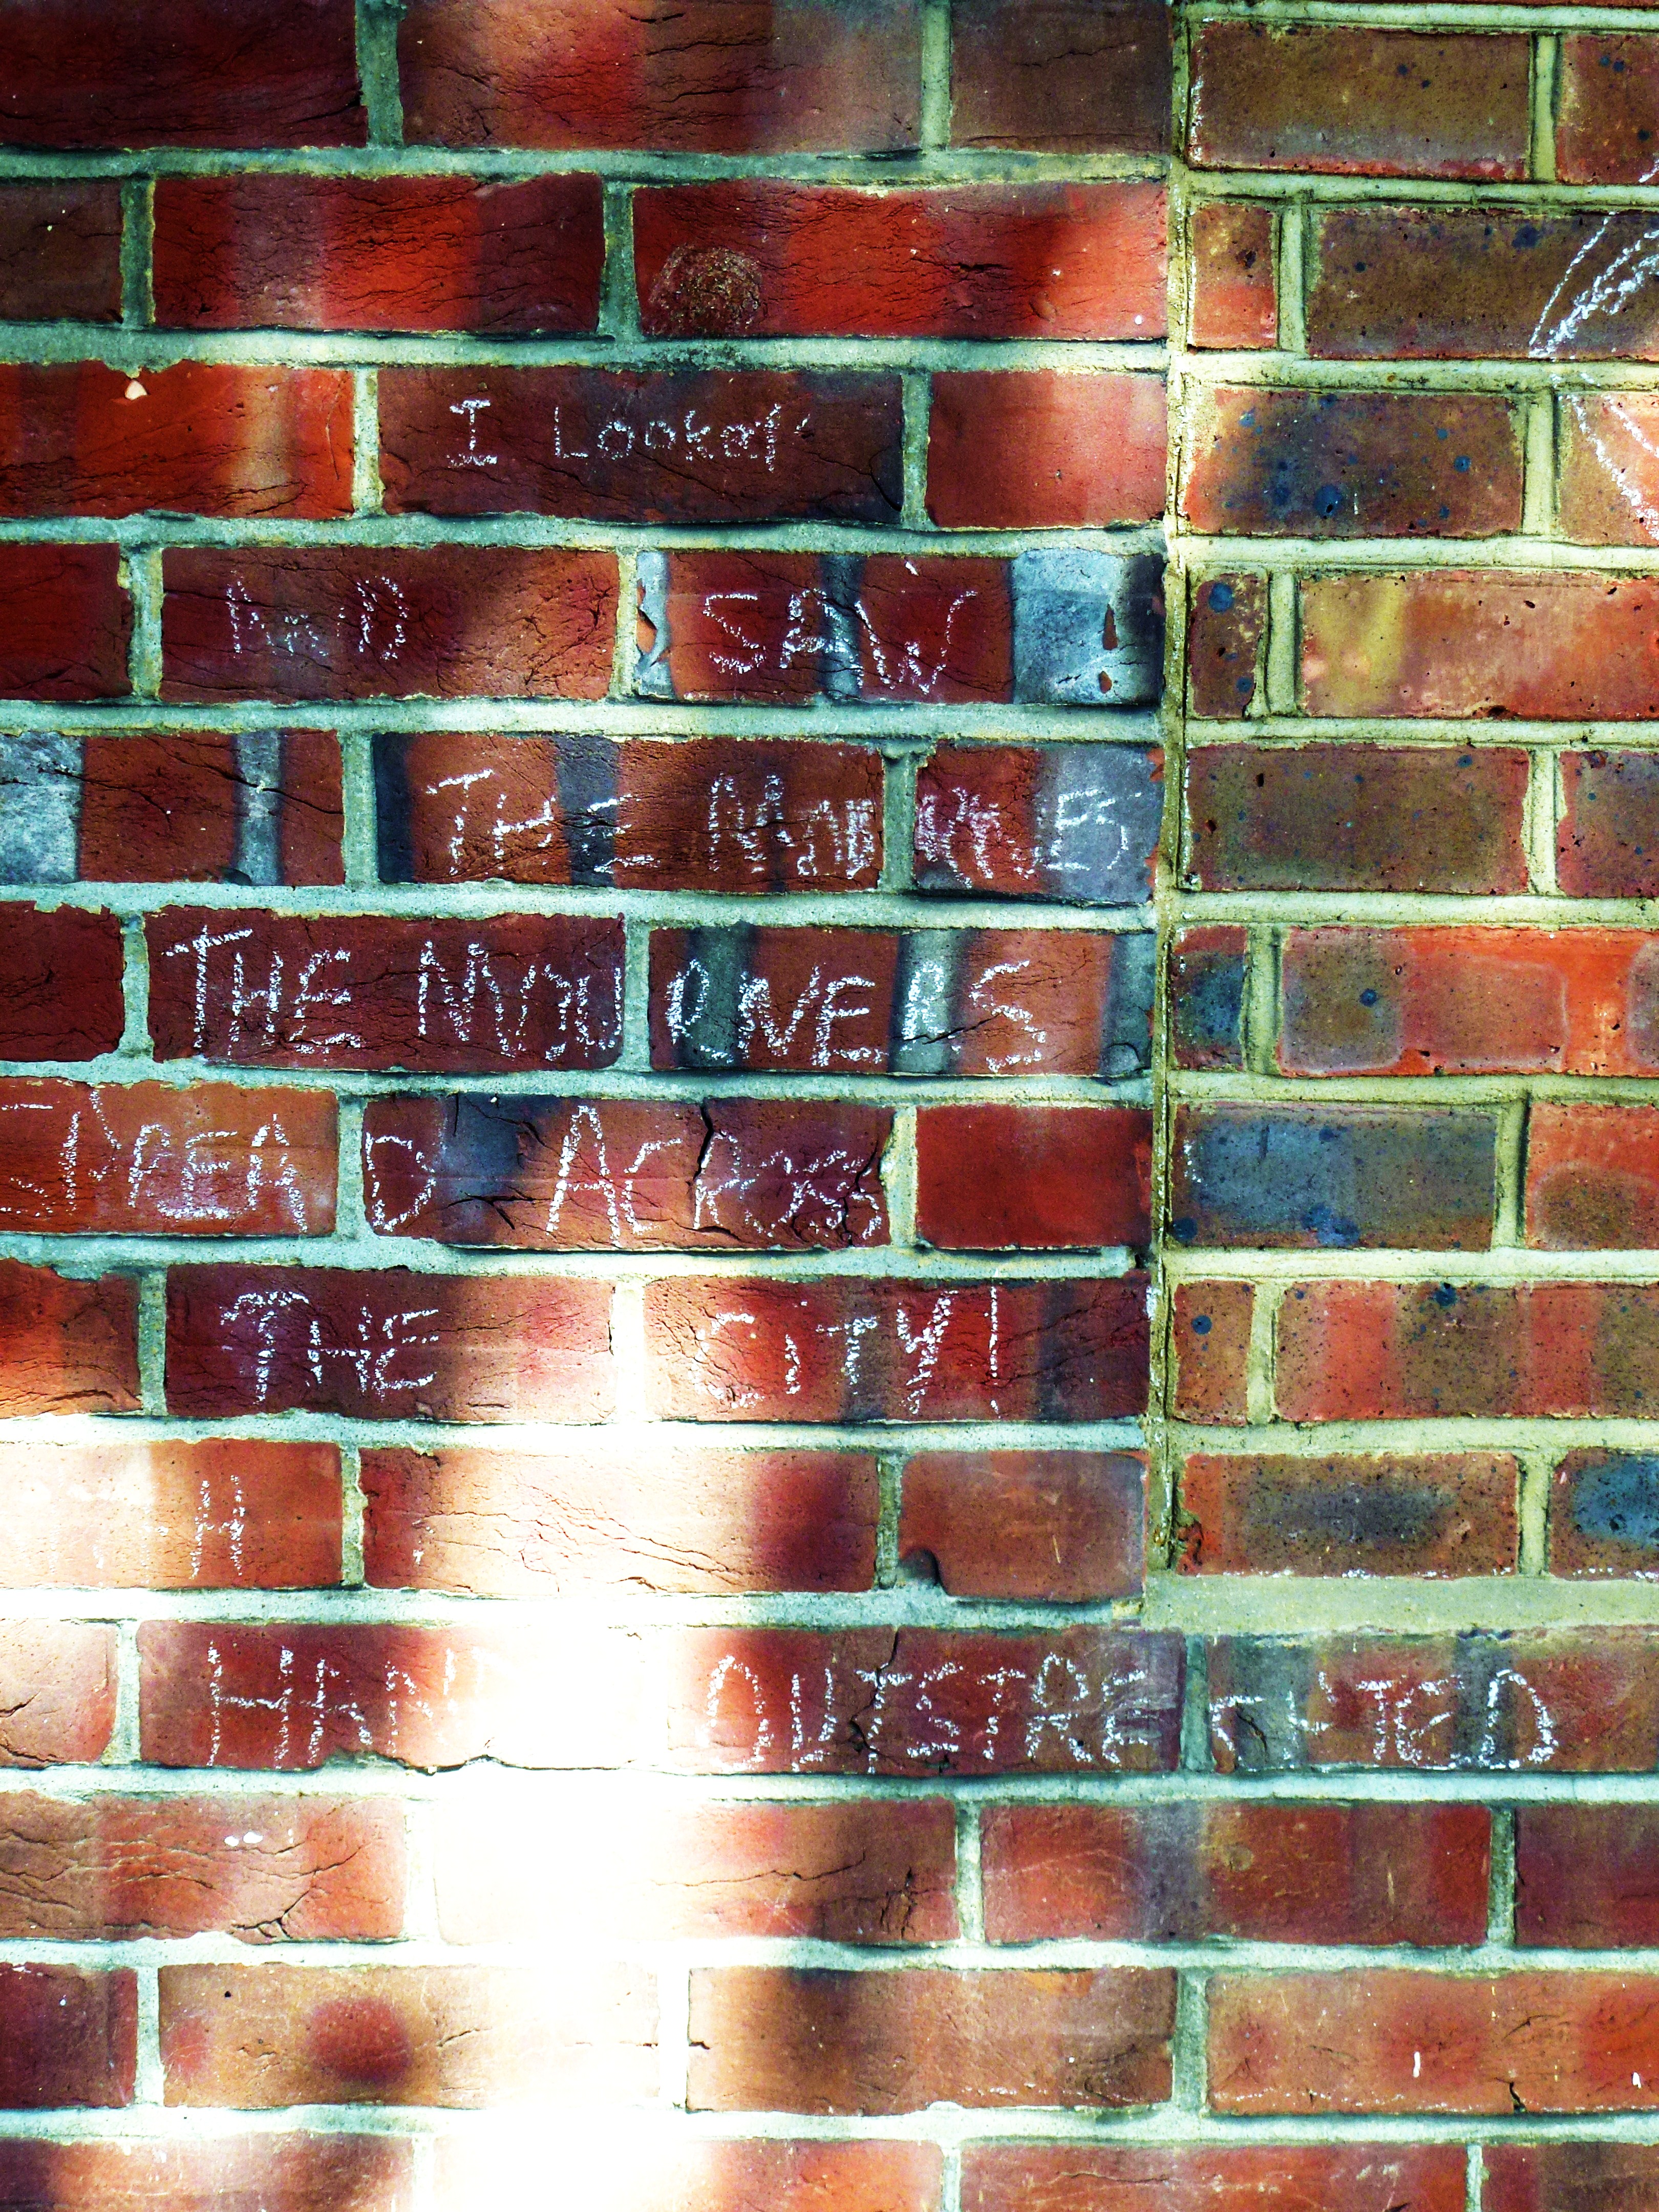 I Looked
AND SAW
THE
THE MOURNERS
SPREAD ACROSS
THE CITY!
H
HAND OUTSTRECHTED